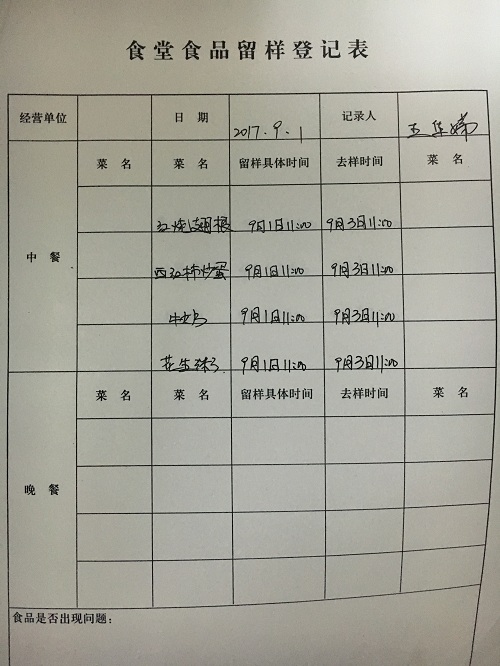 食堂食品留样登记表
经营单位 日期 2017.9.1 记录人 王
菜名 菜名 留样具体时间 去样时间 菜名
中餐
红烧翅根 9月1日11:00 9月3日11:00
西红柿炒蛋 9月1日11:00 9月3日11:00
9月1日11:00 9月3日11:00
花生 9月1日11:00 9月3日11:00
菜名 菜名 留样具体时间 去样时间 菜名
晚餐
食品是否出现问题：